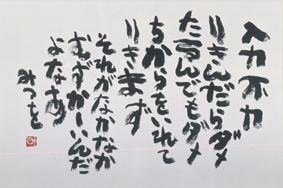 入力不力
りきんだらダメ
たるんでもダメ
ちからをいれて
りきまず
それがなかなか
むずかしいんだ
よなあ
みつを